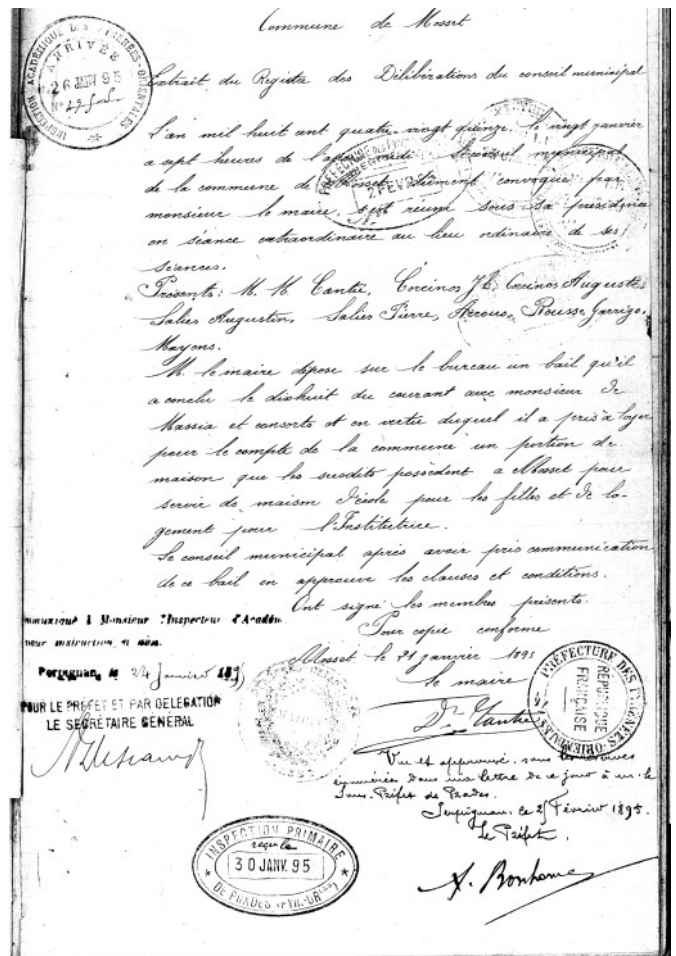 Commune de Mosset
INSPECTION ACADÉMIQUE DES PYRÉNÉES-ORIENTALES
ARRIVÉE
26 JANV 95
N°
Extrait du Registre des Délibérations du conseil municipal
L'an mil huit cent quatre-vingt quinze, le vingt janvier
a sept heures de l'après midi le conseil municipal
2 FEVR
de la commune de Mosset dûment convoqué par
monsieur le maire, s'est réuni sous sa présidence
en séance extraordinaire au lieu ordinaire de ses
séances.
Présents: M. M. Cantié, Corcinos J, Corcinos Auguste
Salies Augustin, Salies Pierre, Arrous, Rousse, Garrigo,
Mayens.
M. le maire dépose sur le bureau un bail qu'il
a conclu le dixhuit du courant avec monsieur de
Massia et consorts et en vertu duquel il a pris à loyer
pour le compte de la commune un portion de
maison que les susdits posèdent a Mosset pour
servir de maison d'école pour les filles et de lo-
gement pour l'Institutrice.
Le conseil municipal après avoir pris communication
de ce bail en approuve les clauses et conditions.
Ont signé les membres présents.
Pour copie conforme
Mosset le 21 janvier 1895
Le maire
Dr Cantié
Communiqué à Monsieur l'Inspecteur d'Académie
pour instruction et avis.
Perpignan, le 24 Janvier 1895
POUR LE PRÉFET ET PAR DÉLÉGATION
LE SECRÉTAIRE GÉNÉRAL
PRÉFECTURE DES PYRÉNÉES-ORIENTALES
RÉPUBLIQUE
FRANÇAISE
Vu et approuvé, sous les réserves
énumérées dans ma lettre de ce jour à m. le
Sous-Préfet de Prades.
Perpignan, ce 2 Février 1895.
Le Préfet.
A. Bonhoure
INSPECTION PRIMAIRE
reçu le
30 JANV. 95
DE PRADES (PYR.-ORles)